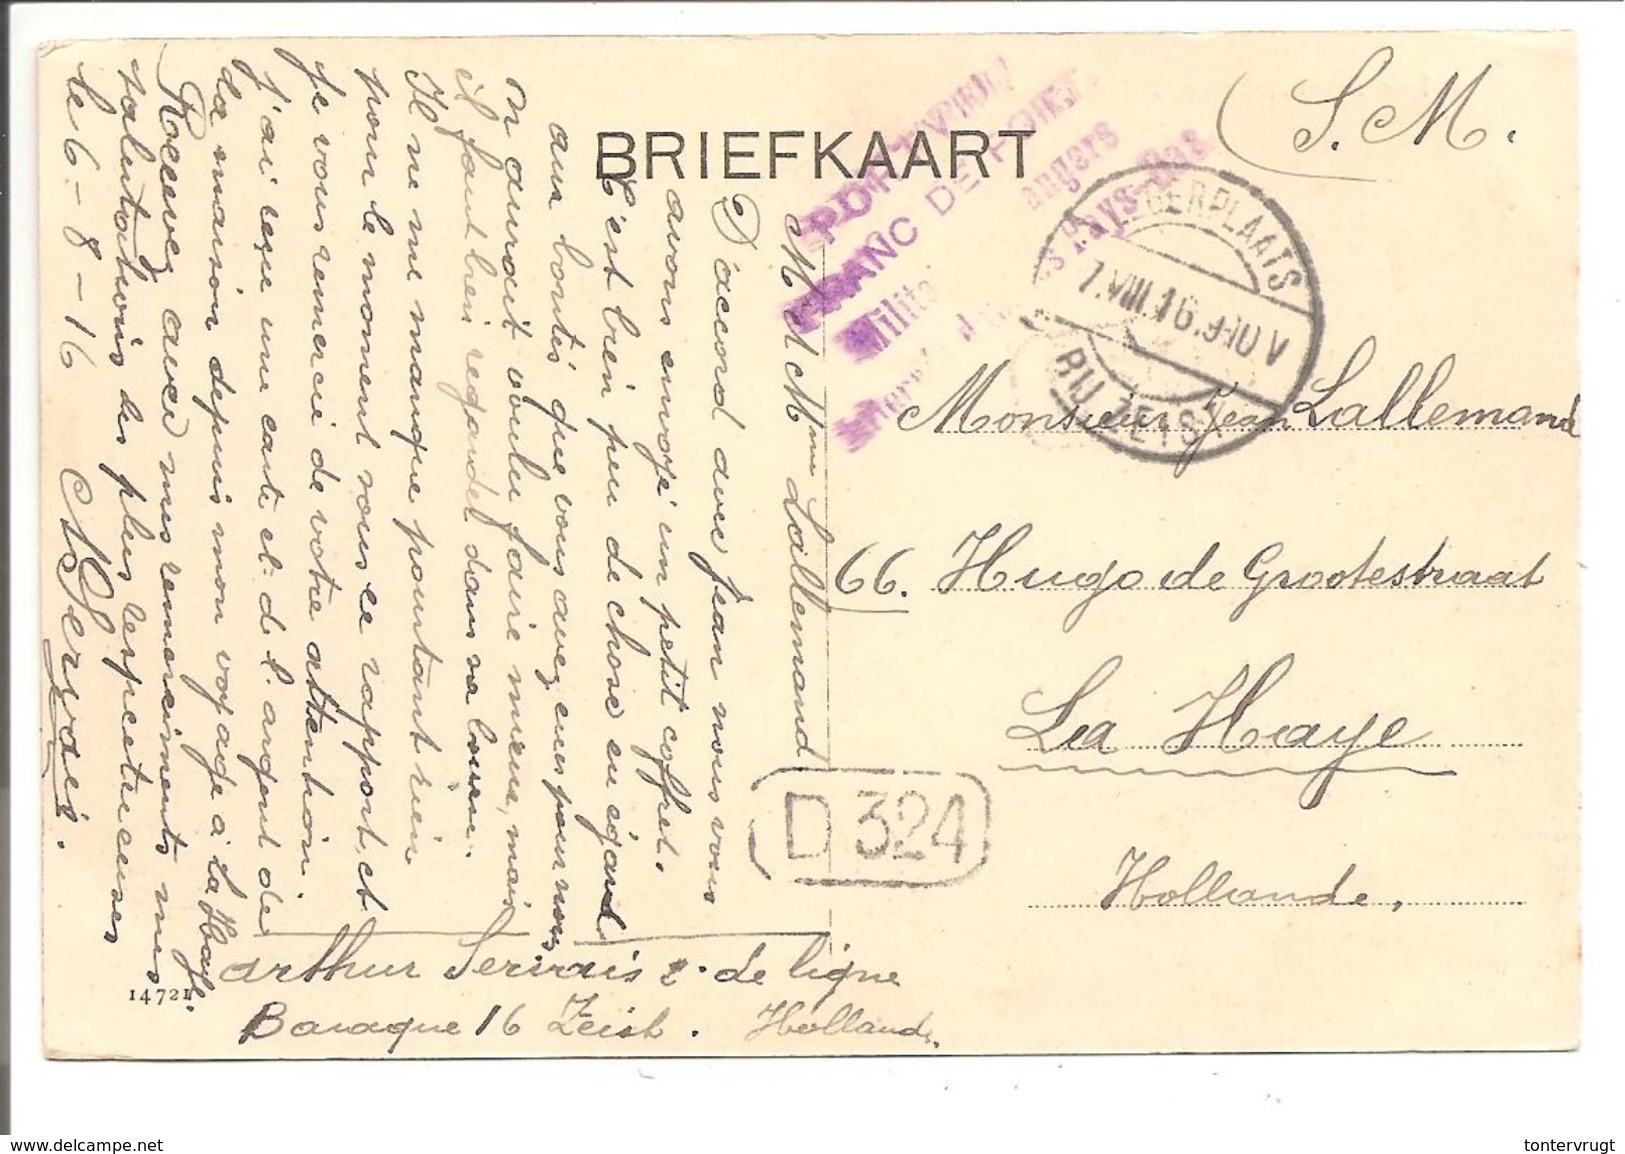 BRIEFKAART
S. M.
PORT
FRANC DE PORT.
Milit
angers
Pays-Bas
LEGERPLAATS
7.VIII.16.9-10 V
BIJ ZEIST
Monsieur Jean Lallemand
66. Hugo de Grootestraat
La Haye
Hollande,
D 324
M et Mme Lallemand
D'accord avec Jean nous vous
avons envoyé un petit coffret.
C'est bien peu de chose en égard
aux bontés que vous avez eues pour nous,
on aurait voulu faire mieux, mais
il faut bien regarder dans sa bourse.
Il ne me manque pourtant rien
pour le moment sous ce rapport, et
je vous remercie de votre attention.
J'ai reçu une carte et de l'argent de
la maison depuis mon voyage à La Haye.
Recevez avec mes remerciments mes
salutations les plus respectueuses
Le 6-8-16 A Servais.
Arthur Servais 2. de ligne
Baraque 16 Zeist. Hollande.
14721
www.delcampe.net
tontervrugt